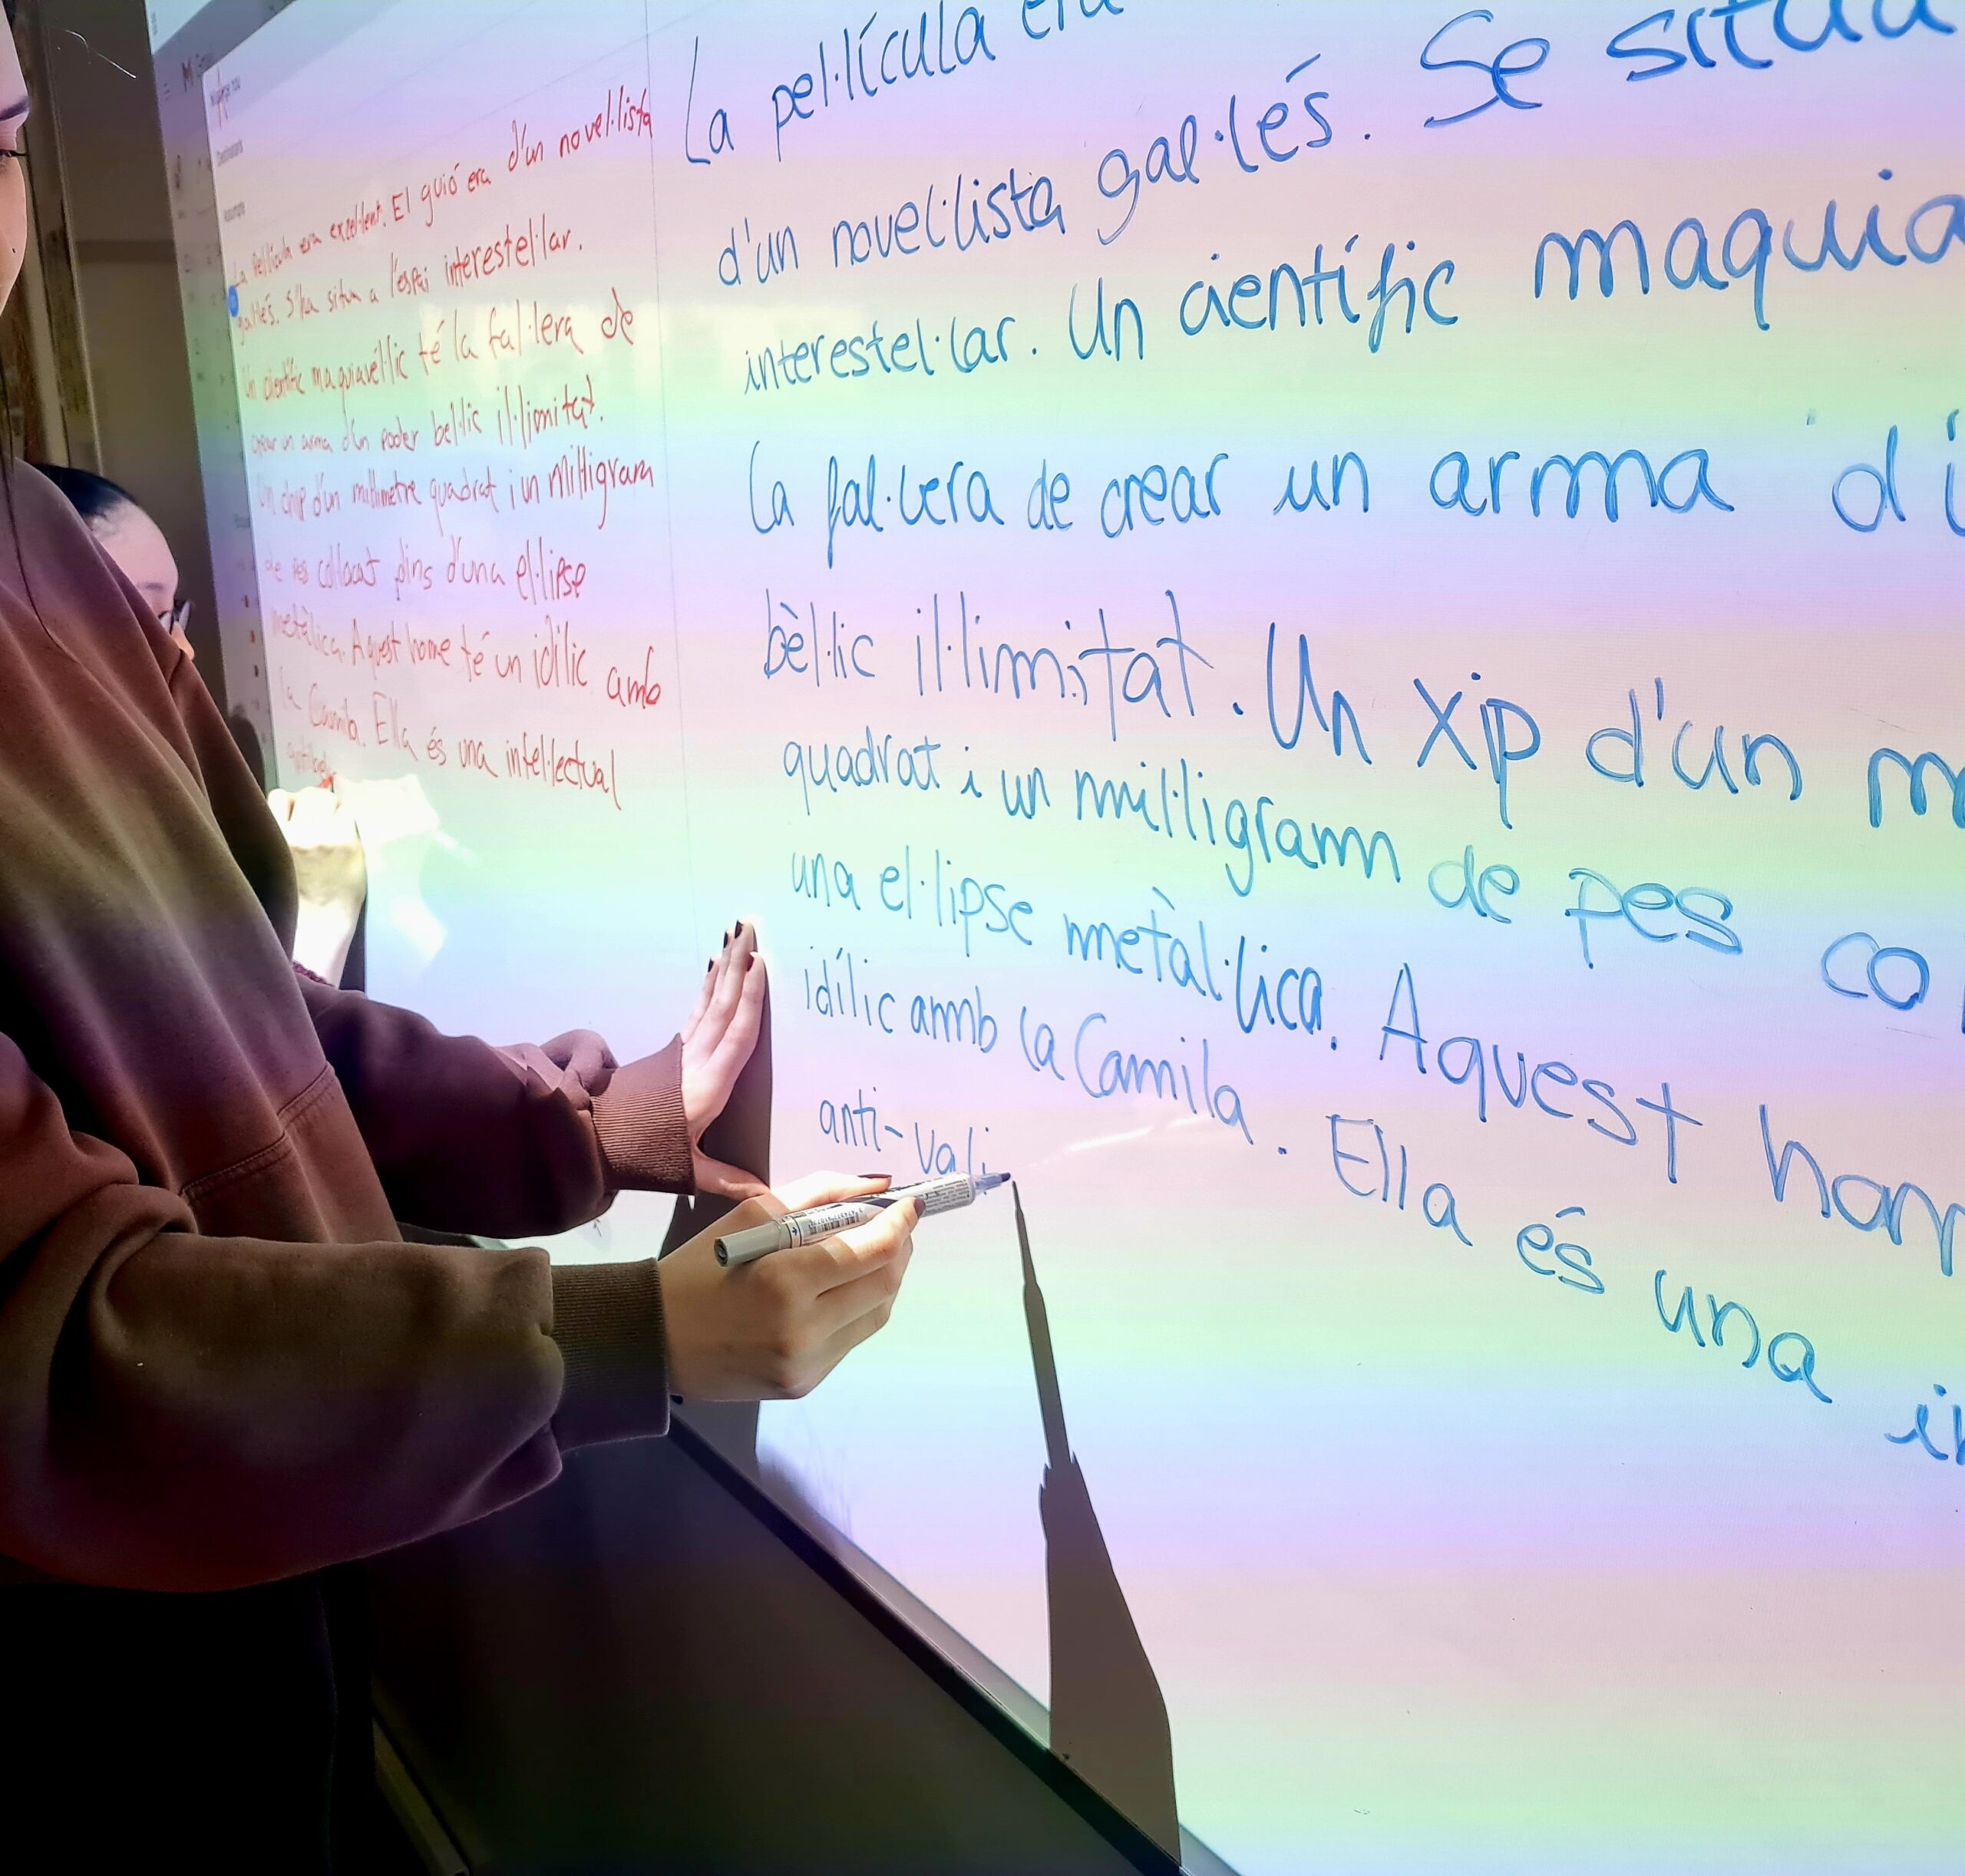 La pel·lícula era excel·lent. El guió era d'un novel·lista
gal·lés. S'ha situa a l'espai interestel·lar.
Un científic maquiavèl·lic té la fal·lera de
crear un arma d'un poder bel·lic il·limitat.
Un chip d'un mil·límetre quadrat i un mil·ligram
de pes col·locat dins d'una el·lipse
metàl·lica. Aquest home té un idílic amb
la Camila. Ella és una intel·lectual
La pel·lícula era
d'un novel·lista gal·lés. Se situa
interestel·lar. Un científic maquia
la fal·lera de crear un arma d'
bèl·lic il·limitat. Un xip d'un m
quadrat i un mil·ligram de pes co
una el·lipse metàl·lica. Aquest hom
idílic amb la Camila. Ella és una in
anti-vali